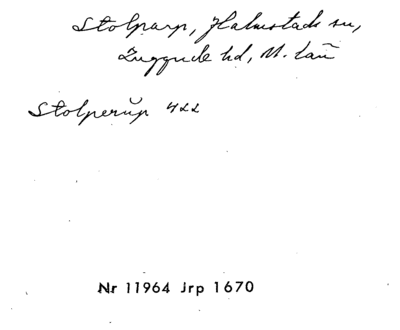 Stolparp, Halmstads sn,
Luggude hd, M. län
Stolperup 422
Nr 11964 Jrp 1670